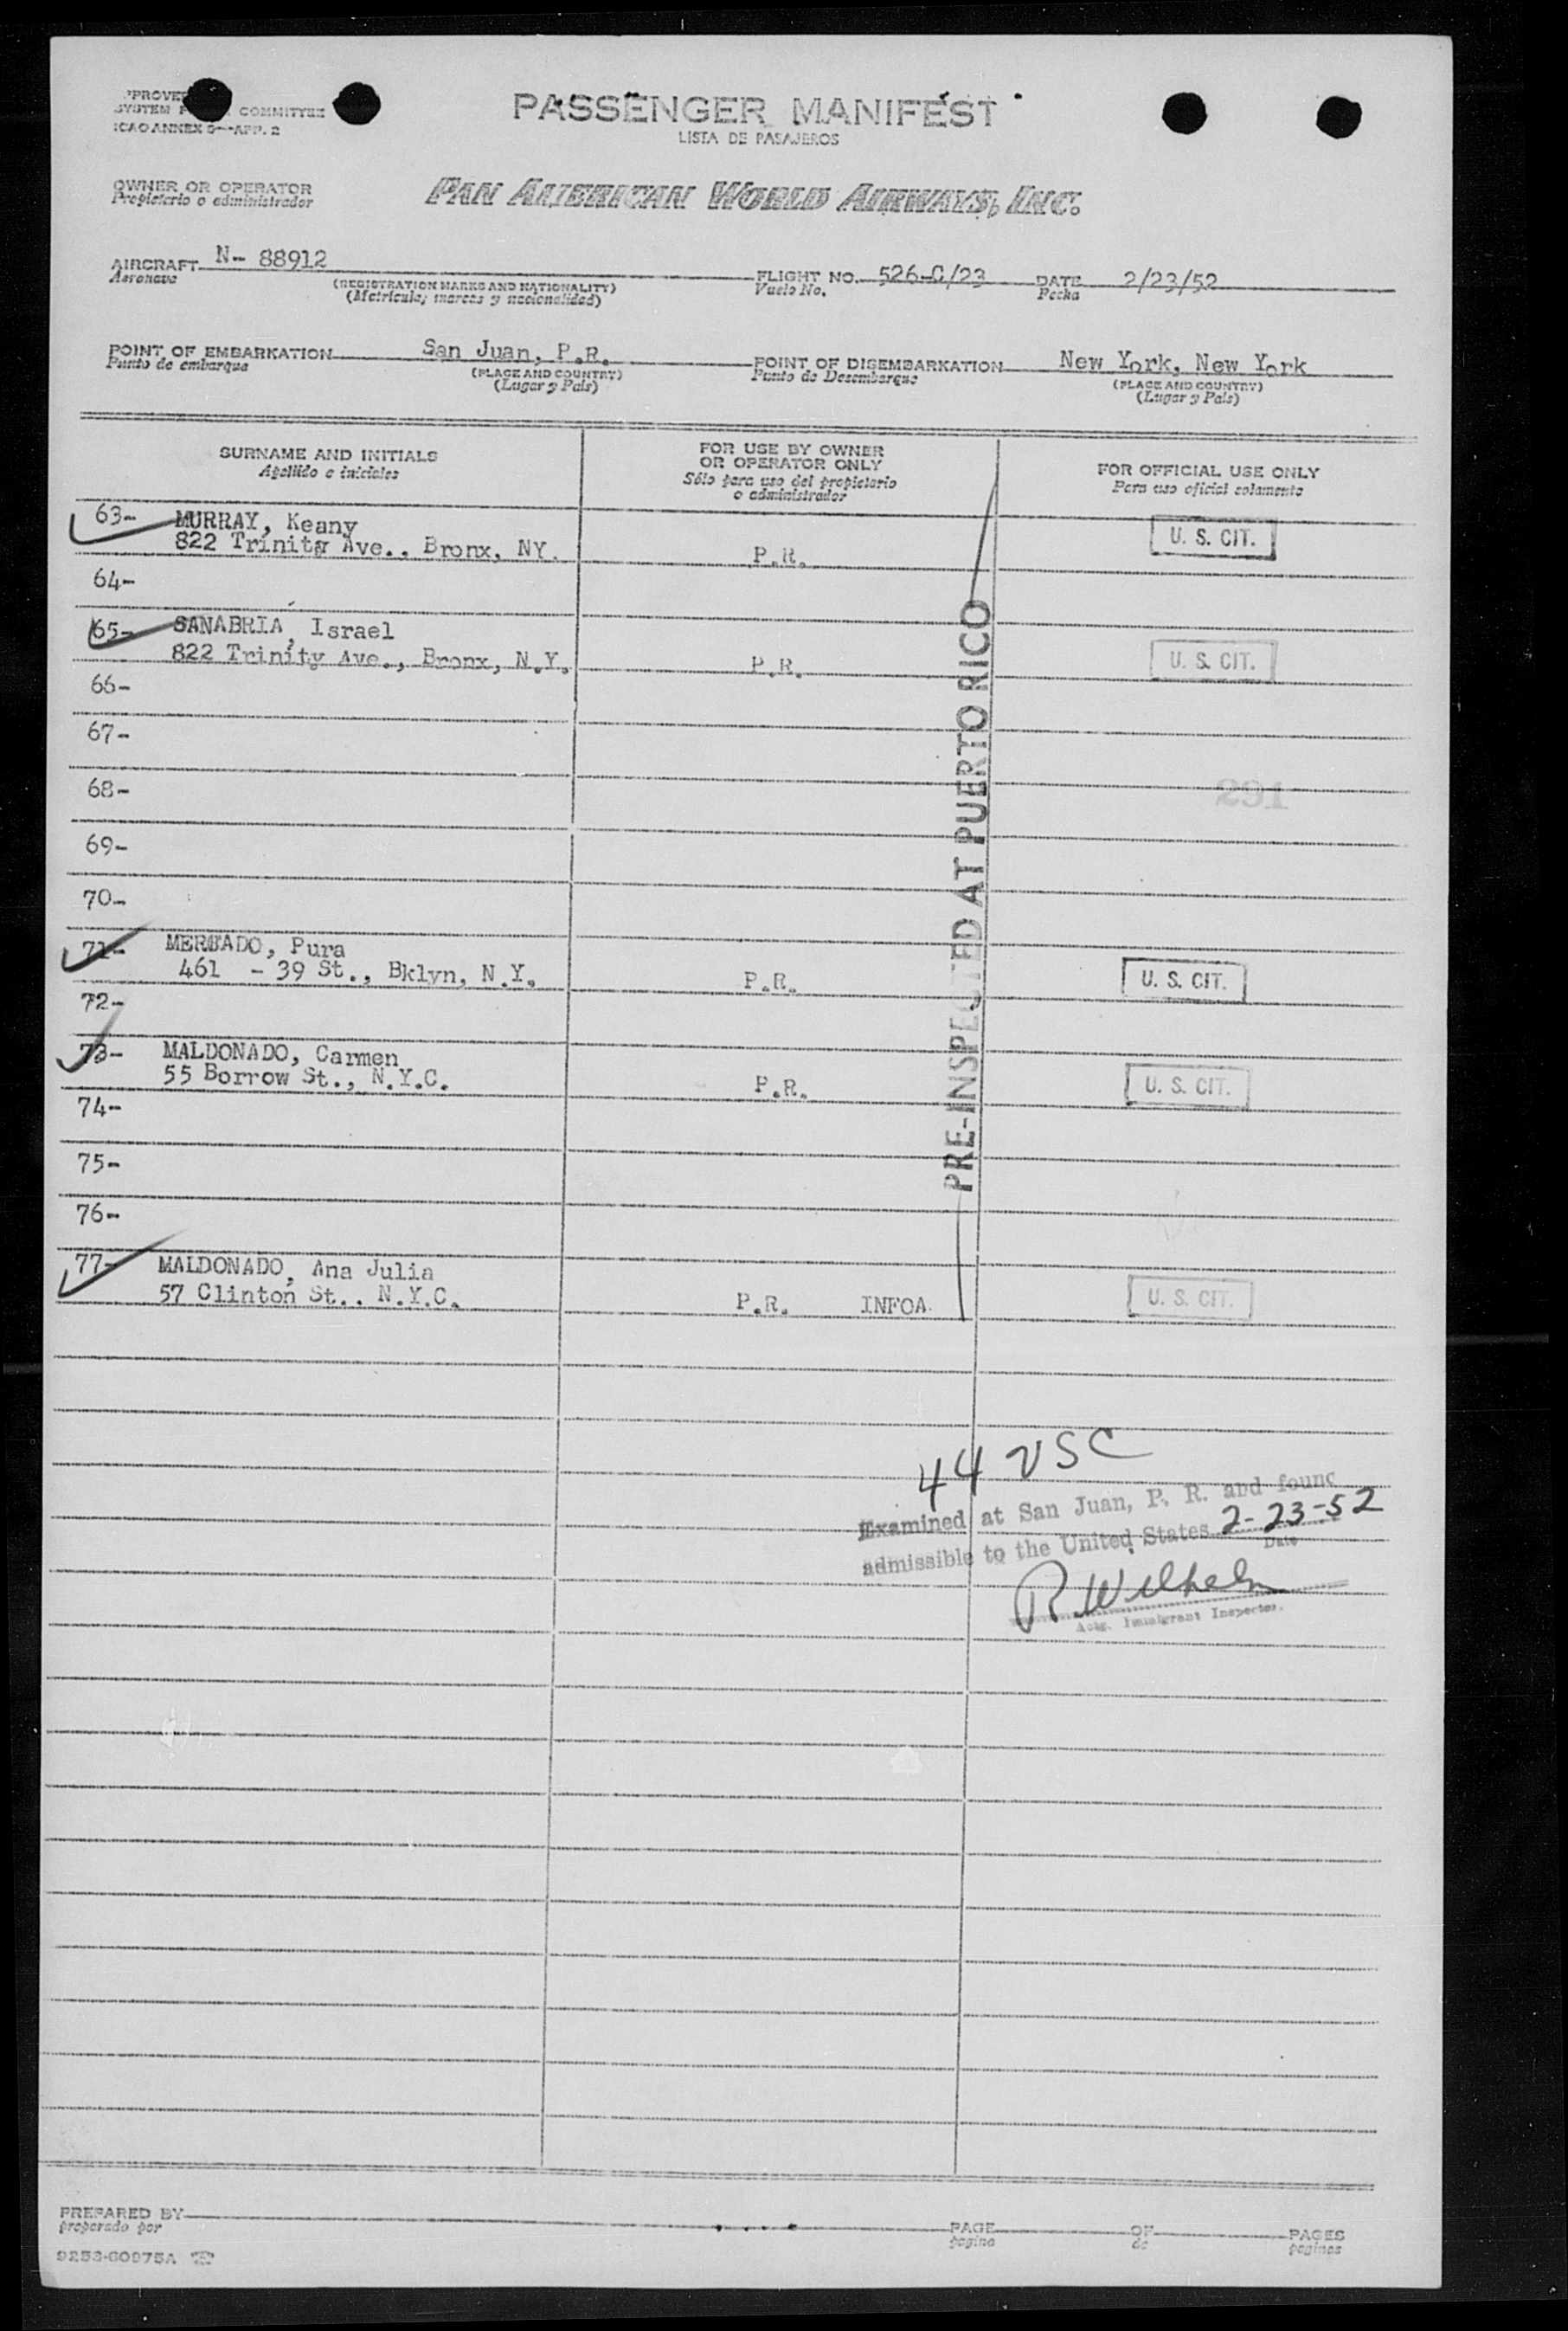 COMMITTEE
ICAO ANNEX 9—APP. 2
PASSENGER MANIFEST
LISTA DE PASAJEROS
OWNER OR OPERATOR
Propietario o administrador
PAN AMERICAN WORLD AIRWAYS, INC.
AIRCRAFT N- 88912
Aeronave
(REGISTRATION MARKS AND NATIONALITY)
(Matricula, marcas y nacionalidad)
FLIGHT NO. 526-C/23
Vuelo No.
DATE 2/23/52
Fecha
POINT OF EMBARKATION San Juan, P.R.
Punto de embarque
(PLACE AND COUNTRY)
(Lugar y Pais)
POINT OF DISEMBARKATION New York, New York
Punto de Desembarque
(PLACE AND COUNTRY)
(Lugar y Pais)
SURNAME AND INITIALS
Apellido e iniciales
FOR USE BY OWNER
OR OPERATOR ONLY
Sólo para uso del propietario
o administrador
FOR OFFICIAL USE ONLY
Para uso oficial solamente
63- MURRAY, Keany
822 Trinity Ave., Bronx, NY. P.R. U. S. CIT.
64-
65- SANABRIA, Israel
822 Trinity Ave., Bronx, N.Y. P.R. U. S. CIT.
66-
67-
68- 291
69-
70-
71- MERCADO, Pura
461 - 39 St., Bklyn, N.Y. P.R. U. S. CIT.
72-
73- MALDONADO, Carmen
55 Borrow St., N.Y.C. P.R. U. S. CIT.
74-
75-
76-
77- MALDONADO, Ana Julia
57 Clinton St., N.Y.C. P.R. INFOA U. S. CIT.
PRE-INSPECTED AT PUERTO RICO
44 USC
Examined at San Juan, P. R. and found
admissible to the United States 2-23-52
Date
R. Wilhelm
Actg. Immigrant Inspector.
PREPARED BY
preparado por
PAGE
pagina
OF
de
PAGES
paginas
9253-60975A